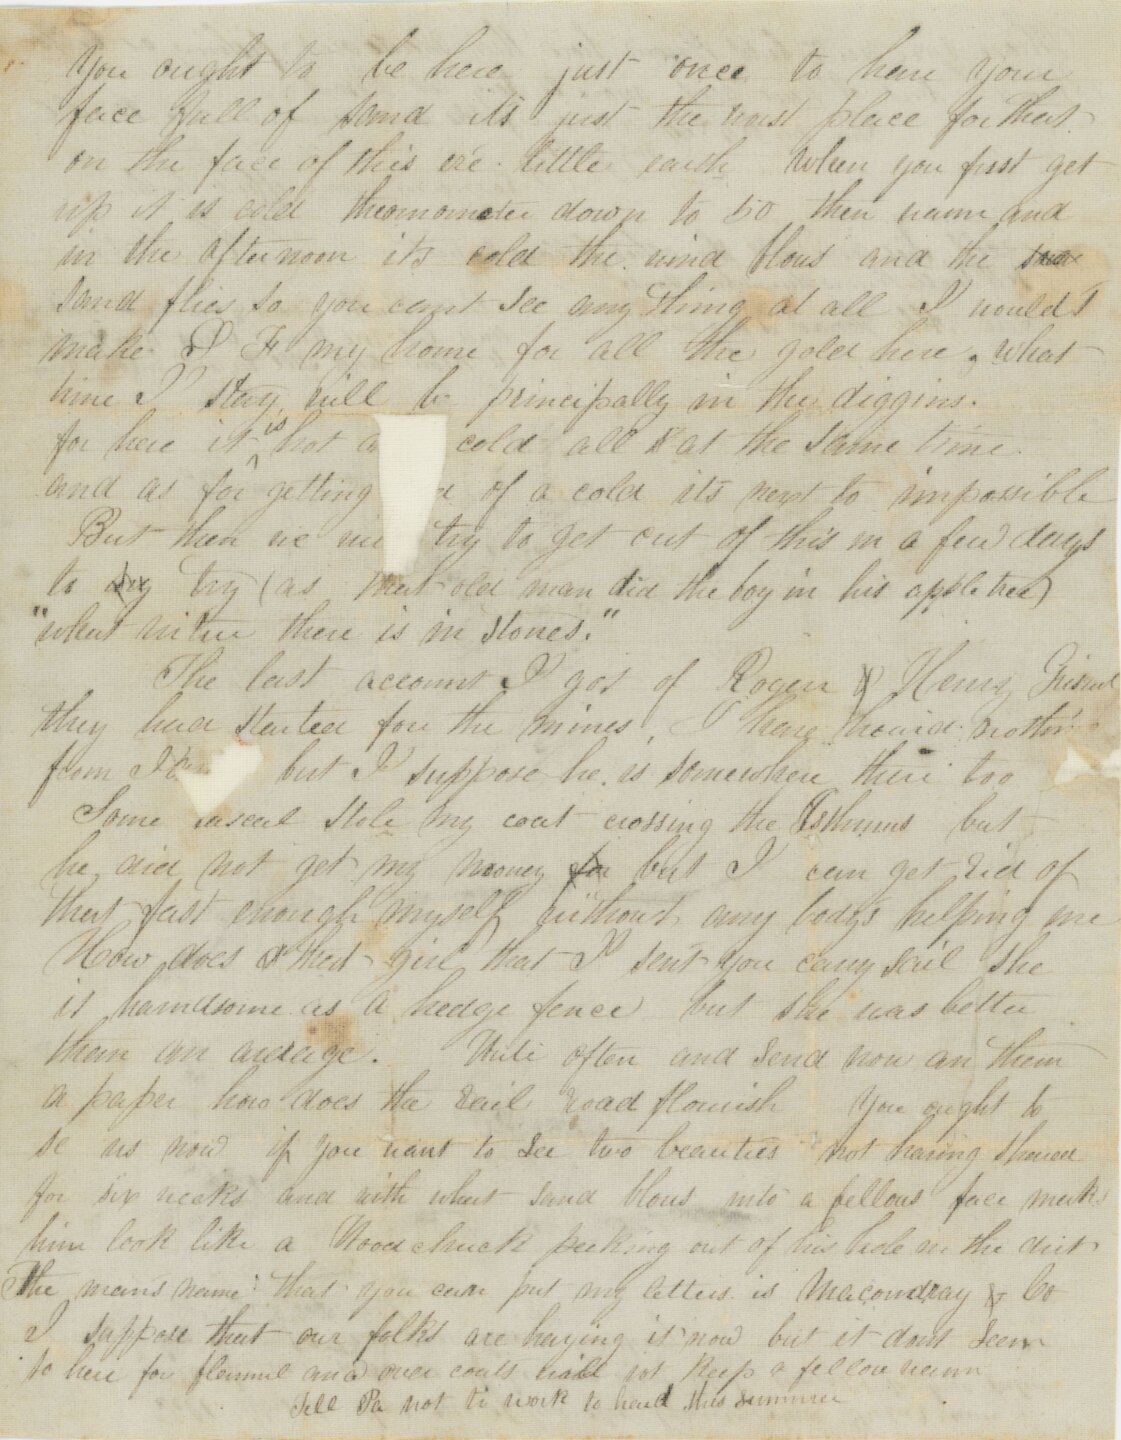 You ought to be here just once to have your
face full of sand its just the worst place for that
on the face of this ere little earth When you first get
up it is cold theomometer down to 50 then warm and
in the afternoon its cold the wind blows and the
sand flies so you cant see any thing at all I would't
make S F my home for all the gold here, what
time I stay will be principally in the diggins.
for here it is hot a cold all at the same time
and as for getting d of a cold its next to impossible
But then we wi try to get out of this in a few days
to try (as that old man did the boy in his apple tree)
"what virtue there is in stones."
The last account I got of Roger & Henry
they had started for the mines, I have heard nothin
from but I suppose he is somewhere there too
Some rascal stole my coat crossing the Isthmus but
he did not get my mooney but I can get rid of
that fast enough myself without any bodys helping me
How does that girl that I sent you carry sail she
is handsome as a hedge fence but she was better
than an average. Write often and send now an then
a paper how does the rail road flourish You ought to
se us now if you want to see two beauties not having shaved
for six weaks and with what sand blows into a fellows face makes
him look like a Wood chuck peeking out of his hole in the dirt
The mans name that you can put my letters is Macondray & Co
I suppose that our folks are haying it now but it dont seem
to here for flannel and over coats will not keep a fellow warm
Tell Pa not to work to hard this summer